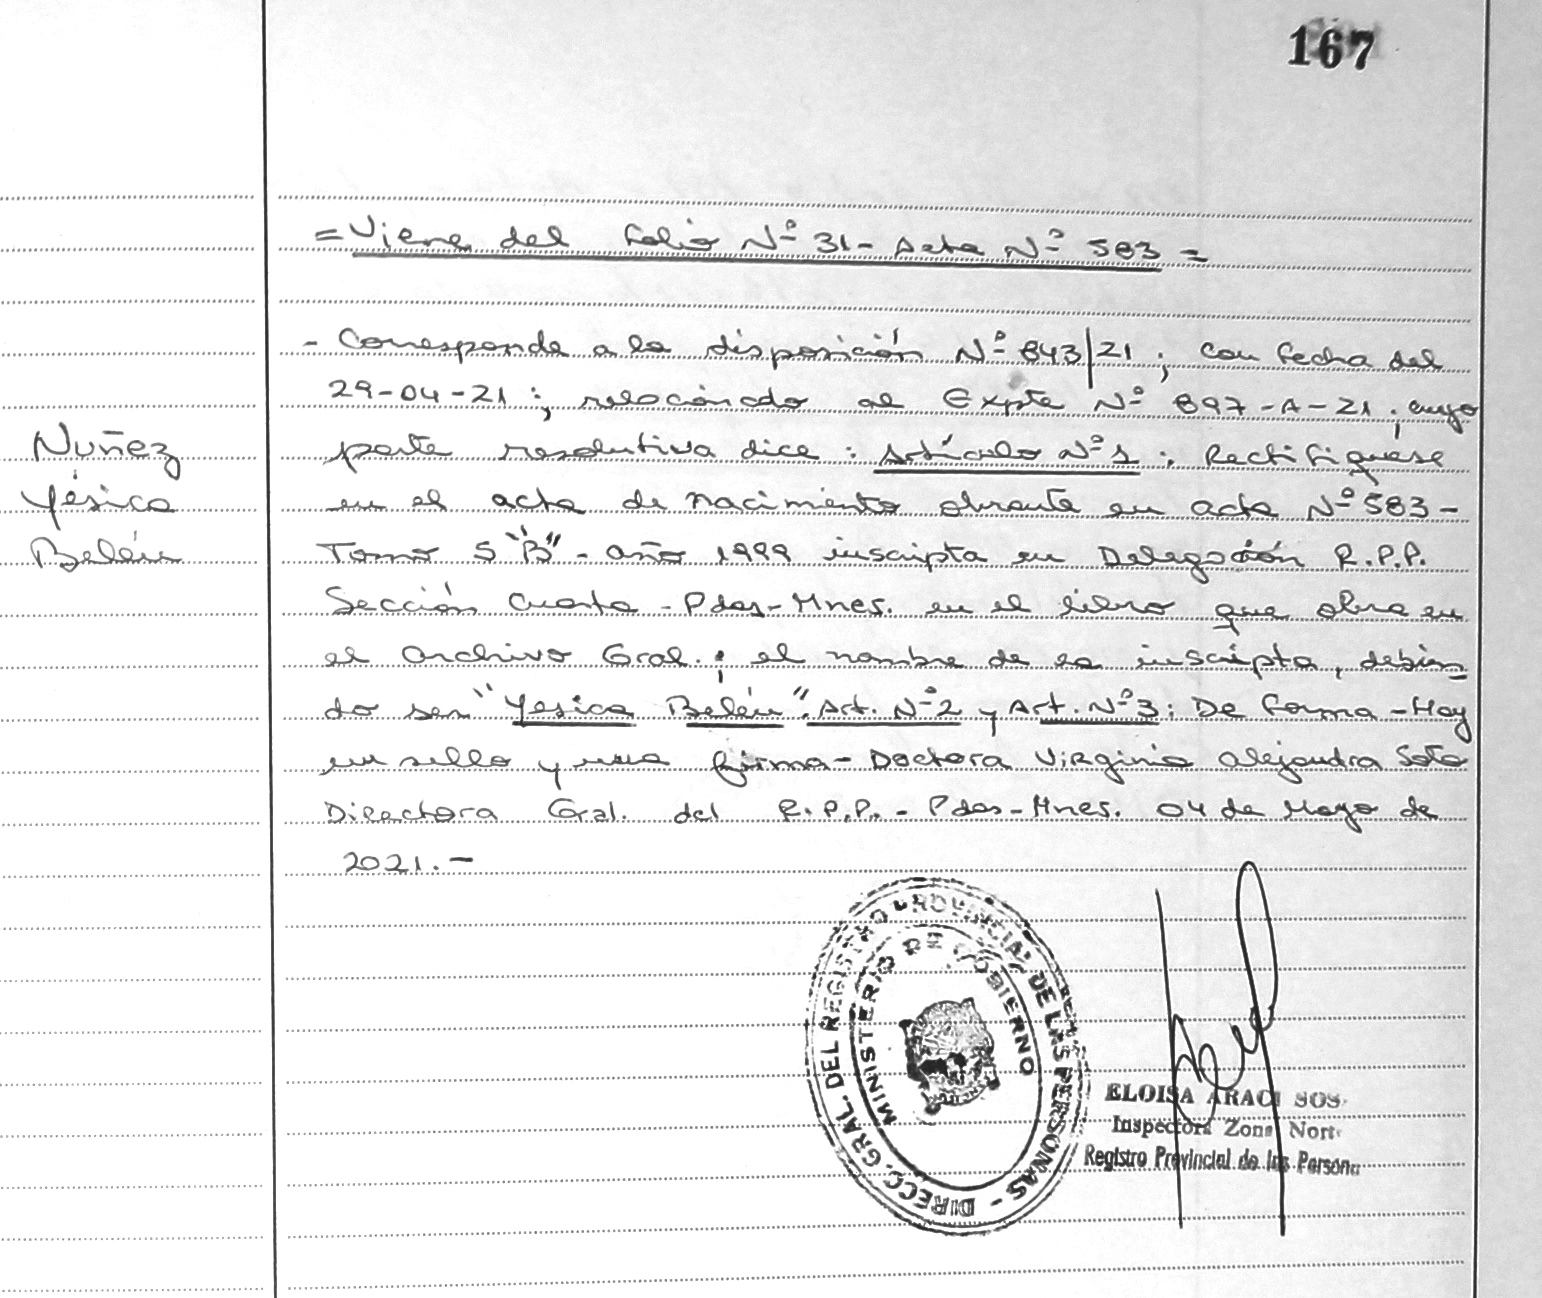 167
= Viene del folio Nº 31 - Acta Nº 583 =
- Corresponde a la disposición Nº 843/21 ; con fecha del
29-04-21 ; relacionado al Expte Nº 897-A-21 ; cuya
Nuñez
parte resolutiva dice : Artículo Nº 1 : Rectifíquese
Yésica
en el acta de nacimiento obrante en acta Nº 583 -
Belén
Tomo 5 "B" - año 1999 inscripta en Delegación R.P.P.
Sección Cuarta - Pdas - Mnes. en el libro que obra en
el archivo Gral. ; el nombre de la inscripta, debien
do ser "Yesica Belén". Art. Nº 2 y Art. Nº 3 : De forma - Hay
un sello y una firma - Doctora Virginia Alejandra Soto
Directora Gral. del R.P.P. - Pdas - Mnes. 04 de Mayo de
2021.-
DIRECC. GRAL. DEL REGISTRO PROVINCIAL DE LAS PERSONAS -
MINISTERIO DE GOBIERNO
ELOISA ARACI SOS
Inspectora Zona Nort
Registro Provincial de las Persona